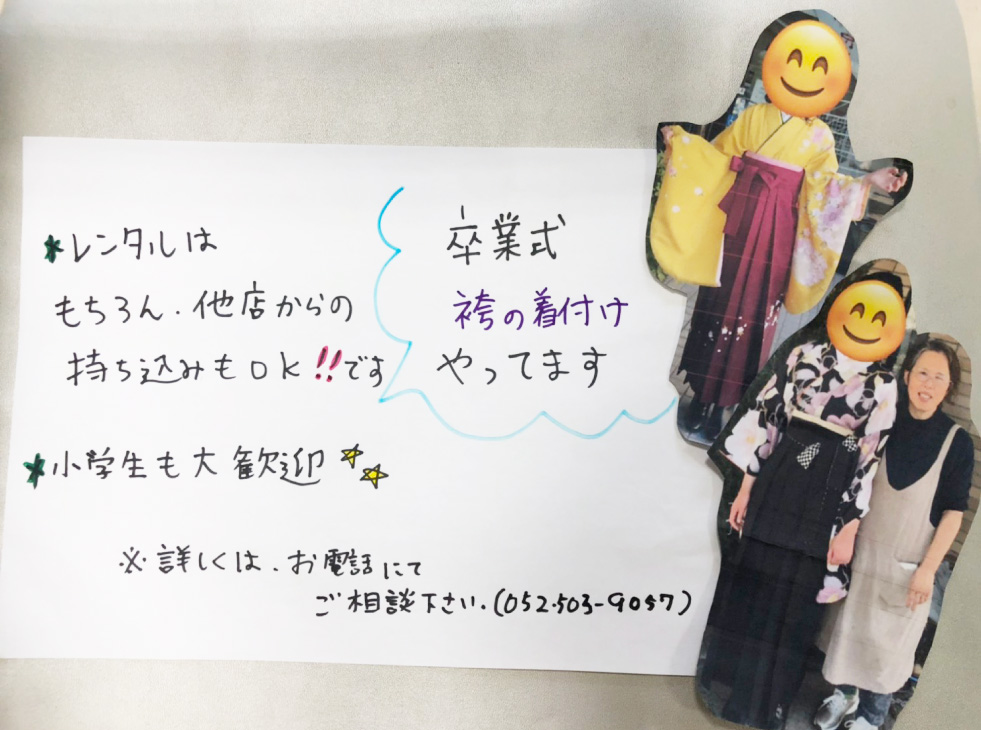 卒業式
袴の着付け
やってます
*レンタルは
もちろん、他店からの
持ち込みもOK!!です
*小学生も大歓迎
※詳しくは、お電話にて
ご相談下さい.(052-503-9057)